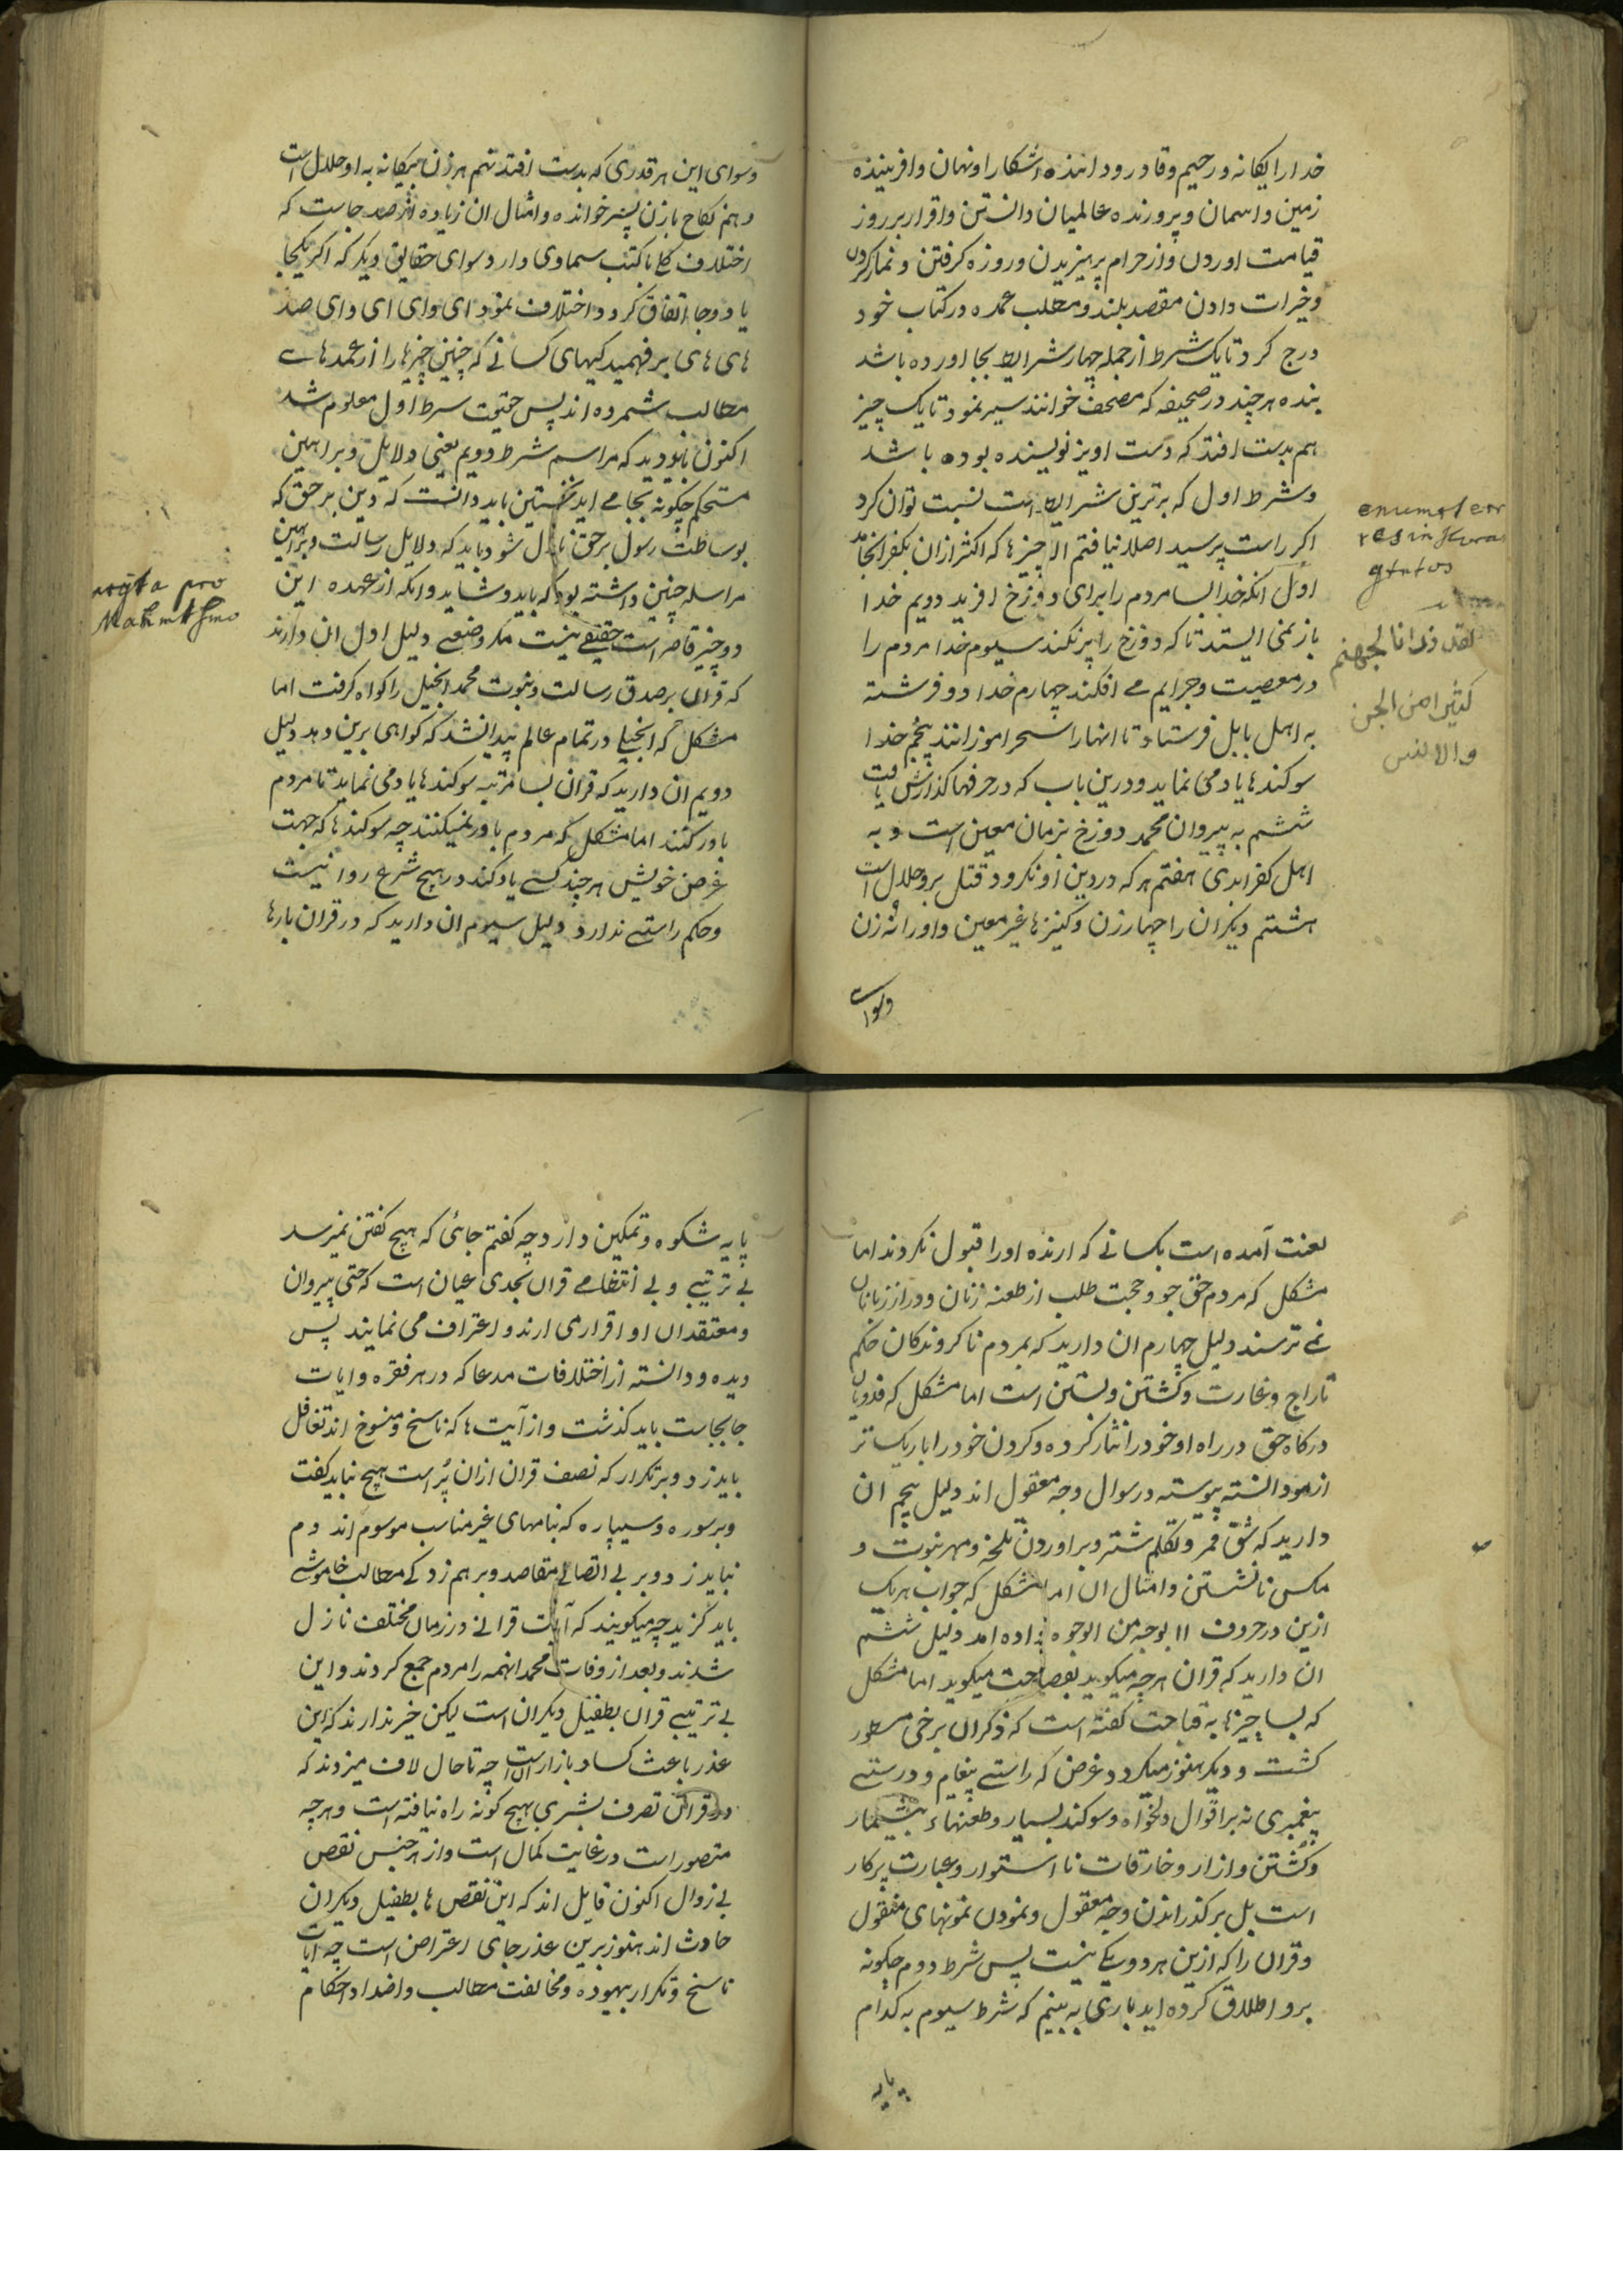 خدا را یکانه و رحیم و قادر و داننده اشکارا و نهان و افریننده
زمین و اسمان و پرورنده عالمیان دانستن و اقرار بر روز
قیامت اوردن و از حرام پرهیزیدن و روزه کرفتن و نماز کردن
و خیرات دادن مقصد بلند و مطلب عمده در کتاب خود
درج کرد تا یک شرط از جمله چهار شرایط بجا اورده باشد
بنده هر چند در صحیفه که مصحف خوانند سیر نمود تا یک چیز
هم بدست افتد که دست اویز نویسنده بوده باشد
و شرط اول که برترین شرایط است نسبت توان کرد
اکر راست پرسید اصلا نیافتم الا چیزها که اکثر ازان بکفر انجامد
اول انکه خدا بسا مردم را برای دوزخ افرید دویم خدا
باز نمی ایستد تا که دوزخ را پر نکند سیوم خدا مردم را
در معصیت و جرایم می افکند چهارم خدا دو فرشته
به اهل بابل فرستاد تا انها را سحر اموزانند پنجم خدا
سوکندها یاد می نماید و درین باب که در حرفها کذارش یافت
ششم به پیروان محمد دوزخ بزمان معین است و به
اهل کفر ابدی هفتم هر که در دین او نکرود قتل بر و حلال است
هشتم دیکران را چهار زن و کنیزها غیر معین و او را نه زن
وسوای
enumeter
res in Kura
لقد ذرانا لجهنم
كثيرا من الجن
والانس
وسوای این هر قدری که بدست افتد نهم هر زن بیکانه به او حلال است
دهم نکاح با زن پسر خوانده و امثال ان زیاده از صد جاست که
اختلاف کلی با کتب سماوی دارد سوای حقایق دیکر که اکر یکجا
یا دو جا اتفاق کرد دو اختلاف نمود ای وای ای وای صد
های های بر فهمیدکیهای کسانی که چنین چیزها را از عمدهای
مطالب شمرده اند پس حقیت شرط اول معلوم شد
اکنون که مراسم شرط دویم یعنی دلایل و براهین
مستحکم چکونه بجا می اید نخستین باید دانست که دین بر حق که
بوساطت رسول بر حق نازل شود باید که دلایل رسالت و براهین
مراسله چنین داشته بود که باید و شاید وانکه از عهده این
دو چیز قاصر است حقیقی نیست مکر وضعی دلیل اول ان دارند
که قران بر صدق رسالت و نبوت محمد انجیل را کواه کرفت اما
مشکل که انجیلی در تمام عالم پیدا نشد که کواهی برین دهد دلیل
دویم ان دارید که قران بسا مرتبه سوکندها یاد می نماید تا مردم
باور کنند اما مشکل که مردم باور نمیکنند چه سوکندها که جهت
غرض خویش هر چند کسی یاد کند در هیچ شرع روا نیست
و حکم راستی ندارد دلیل سیوم ان دارید که در قران بارها
pro
لعنت آمده است بکسانی که ارنده او را قبول نکردند اما
مشکل که مردم حق جو و حجت طلب از طعنه زنان و دراز زبانان
نمی ترسند دلیل چهارم ان دارید که بمردم ناکروندکان حکم
تاراج و غارت و کشتن و بستن است اما مشکل که فدویان
درکاه حق در راه او خود را نثار کرده و کردن خود را باریک تر
از مو دانسته پیوسته در سوال وجه معقول اند دلیل پنجم ان
دارید که شق قمر و تکلم شتر و براوردن نخله و مهر نبوت و
مکس نانشستن و امثال ان اما مشکل که جواب هر یک
ازین در حروف ۱۱ بوجه من الوجوه داده امد دلیل ششم
ان دارید که قران هر چه میکوید بفصاحت میکوید اما مشکل
که بسا چیزها به قباحت کفته است که ذکر ان برخی مسطور
کشت و دیکر هنوز میکردد غرض که راستی پیغام و درستی
پیغمبری نه بر اقوال دلخواه و سوکند بسیار و طعنهاء بیشمار
و کشتن و ازار و خارقات نا استوار و عبارت پرکار
است بل بر کذراندن وجه معقول و نمودن نمونهای منقول
و قران را که ازین هر دو یکی نیست پس شرط دوم چکونه
برو اطلاق کرده اید باری به بینم که شرط سیوم به کدام
پایه
پایه شکوه و تمکین دارد چه کفتم جائی که هیچ کفتن نمیرسد
بی ترتیبی و بی انتظامی قران بحدی عیان است که حتی پیروان
و معتقدان او اقرار می ارند و اعتراف می نمایند پس
دیده و دانسته از اختلافات مدعا که در هر فقره و ایات
جابجاست باید کذشت و از آیت ها که ناسخ و منسوخ اند تغافل
باید زد و بر تکرار که نصف قران ازان پر است هیچ نباید کفت
و بر سوره و سیپاره که بنامهای غیر مناسب موسوم اند دم
نباید زد و بر بی اتصالی مقاصد و برهم زدکی مطالب خاموشی
باید کزید چه میکویند که آیات قرانی در زمان مختلف نازل
شدند و بعد از وفات محمد انهمه را مردم جمع کردند و این
بی ترتیبی قران بطفیل دیکران است لیکن خبر ندارند که این
عذر باعث کساد بازار است چه تا حال لاف میزدند که
در قران تصرف بشری بهیچ کونه راه نیافته است و هر چه
متصور است در غایت کمال است و از هر جنس نقص
بی زوال اکنون قایل اند که این نقص ها بطفیل دیکران
حادث اند هنوز برین عذر جای اعتراض است چه ایات
ناسخ و تکرار بیهوده و مخالفت مطالب و اضداد احکام